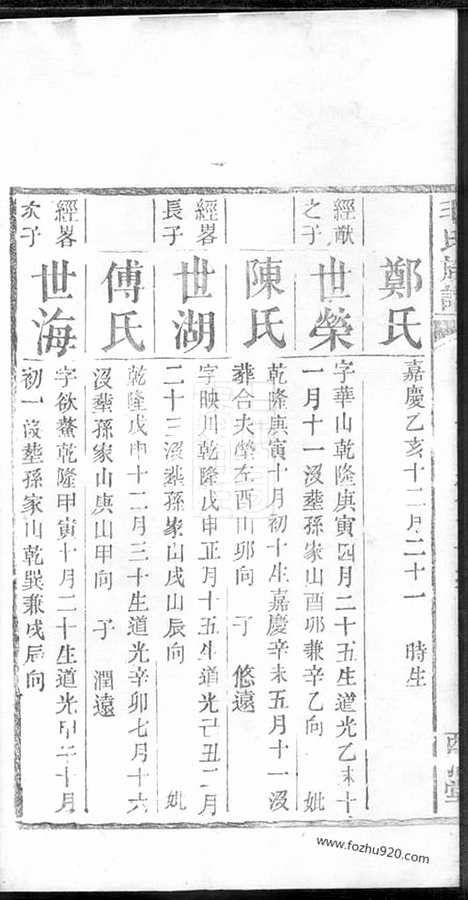 鄭氏
嘉慶乙亥十二月二十一　時生
經猷之子
世榮
字華山乾隆庚寅四月二十五生道光乙未十
一月十一沒塟孫家山酉卯兼辛乙向　妣
陳氏
乾隆庚寅十月初十生嘉慶辛未五月十一沒
葬合夫塋左酉山卯向　子　悠遠
經畧長子
世湖
字映川乾隆戊申正月十五生道光己丑二月
二十三沒塟孫家山戌山辰向　妣
傅氏
乾隆戊申十二月三十生道光辛卯七月十六
沒塟孫家山庚山甲向　子　潤遠
經畧次子
世海
字欲鰲乾隆甲寅十月二十生道光甲午十月
初一沒塟孫家山乾巽兼戌辰向
www.fozhu920.com